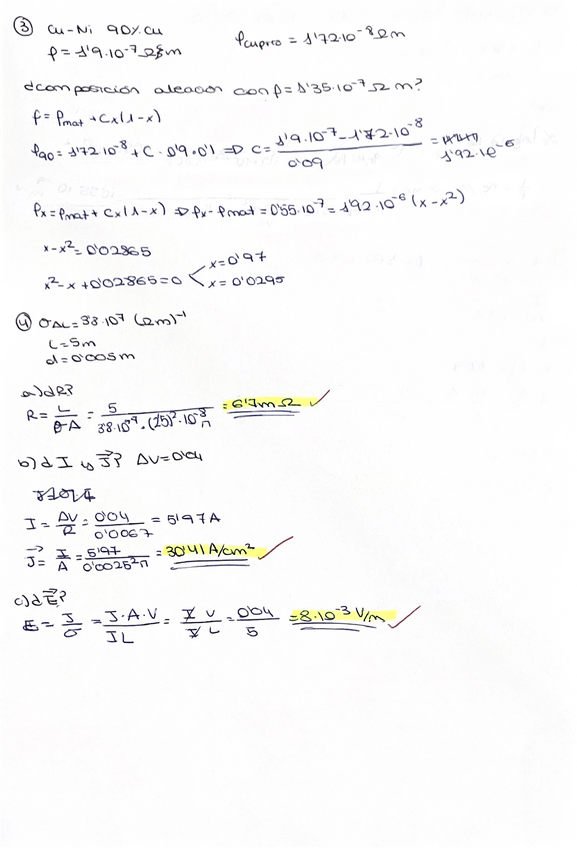 ③ Cu-Ni 90% Cu
ρ = 1'9·10⁻⁷ Ωm
ρcuprco = 1'72·10⁻⁸ Ωm
d composición aleación con ρ = 1'35·10⁻⁷ Ω m?
ρ = ρmat + Cx(1-x)
ρ90 = 1'72·10⁻⁸ + C · 0'9·0'1 ⇒ C = (1'9·10⁻⁷ - 1'72·10⁻⁸)/0'09 = 1'92·10⁻⁶
ρx = ρmat + Cx(1-x) ⇒ ρx - ρmat = 0'55·10⁻⁷ = 1'92·10⁻⁶ (x-x²)
x-x² = 0'02865
x² - x + 0'02865 = 0 < x = 0'97
x = 0'0295
④ σAL = 3'8·10⁷ (Ωm)⁻¹
L = 5m
d = 0'005m
a) d R?
R = L/(σ·A) = 5/(3'8·10⁷·(25)²·10⁻⁸π) = 6'7mΩ ✓
b) d I y J⃗? ΔV = 0'04
I = ΔV/R = 0'04/0'0067 = 5'97A
J⃗ = I/A = 5'97/(0'0025²π) = 30'41 A/cm² ✓
c) d E⃗?
E = J/σ = J·A·V/(I L) = I V/(I L) = 0'04/5 = 8·10⁻³ V/m ✓